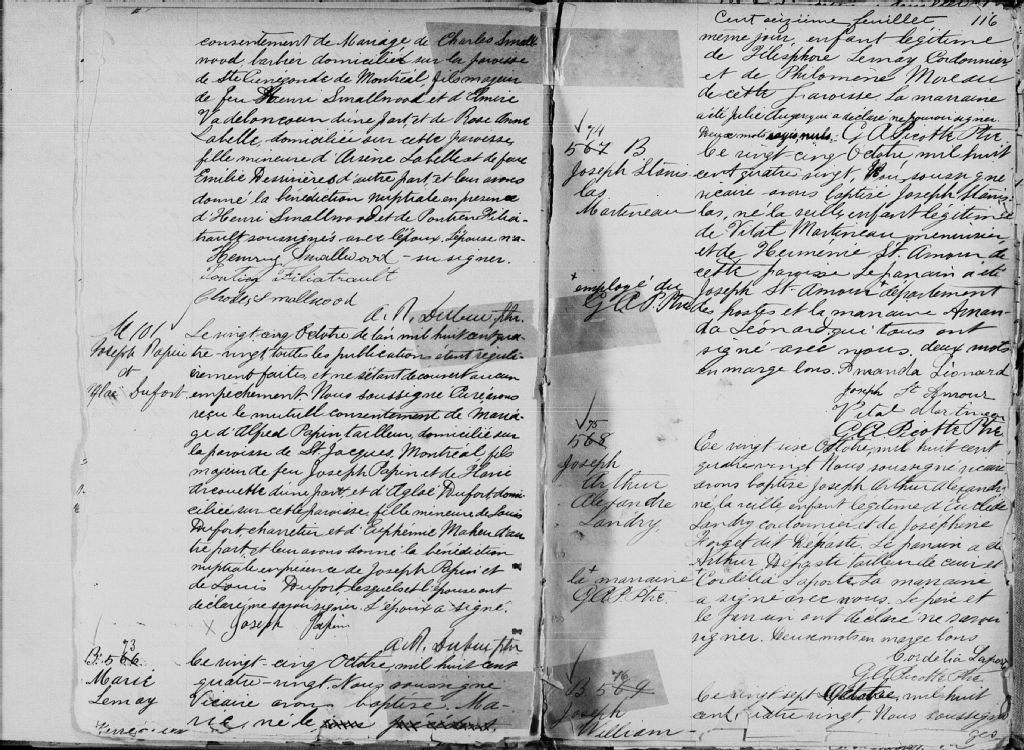 consentement de Mariage de Charles Small
wood, barbier domicilié sur la paroisse
de Ste Cunégonde de Montréal fils majeur
de feu Henri Smallwood et d'Elmire
Vadeboncoeur d'une part, et de Rose Anna
Labelle, domiciliée sur cette paroisse,
fille mineure d'Arsène Labelle et de feue
Emilie Desrivières d'autre part, et leur avons
donné la bénédiction nuptiale en présence
d'Henri Smallwood et de Pontien Filia-
trault soussignés avec l'époux. L'épouse n'a
Henry Smallwood su signer.
Filiatrault
Charles Smallwood
A. R. Dubuc ptr.
M 101
Joseph Papin
et
Aglaé Dufort
Le vingt-cinq Octobre de l'an mil huit cent qua-
tre-vingt toutes les publications étant réguli-
èrement faites, et ne s'étant découvert aucun
empêchement Nous soussigné Curé avons
reçu le mutuel consentement de maria-
ge d'Alfred Papin tailleur, domicilié sur
la paroisse de St Jacques, Montréal, fils
majeur de feu Joseph Papin et de Flavie
d'une part, et d'Aglaé Dufort domi-
ciliée sur cette paroisse, fille mineure de Louis
Dufort, charretier et d'Euphémie Maheu d'au
tre part et leur avons donné la bénédiction
nuptiale en présence de Joseph Papin et
de Louis Dufort, lesquels et l'épouse ont
déclaré ne savoir signer. L'époux a signé.
X Joseph Papin
A. R. Dubuc ptr
73
B. 566
Marie
Lemay
Ce vingt-cinq Octobre, mil huit cent
quatre-vingt, Nous soussigné
Vicaire avons baptisé Ma-
rie, née le
Cent seizième feuillet 116
même jour, enfant légitime
de Télesphore Lemay Cordonnier
et de Philomène Moreau
de cette paroisse. La marraine
a été Julie qui a déclaré ne pouvoir signer.
Deux mots rayés nuls. G A Picotte Ptre
74
567 B
Joseph Stanis
las
Martineau
Ce vingt-cinq Octobre, mil huit
cent quatre vingt, Nous soussigné
vicaire avons baptisé Joseph Stanis-
las, né la veille, enfant légitime
de Vital Martineau menuisier,
et de Herménie St. Amour de
cette paroisse. Le parrain a été
+ employé du
G A P. Ptre
Joseph St-Amour + département
des postes et la marraine Aman-
da Léonard qui tous ont
signé avec nous, deux mots
en marge bons. Amanda Léonard
Joseph St Amour
Vital Martineau
G A Picotte Ptre
75
568
Joseph
Arthur
Alexandre
Landry
Ce vingt six Octobre, mil huit cent
quatre vingt Nous soussigné vicaire
avons baptisé Joseph Arthur Alexandre
né la veille, enfant légitime d'Euclide
Landry cordonnier et de Josephine
Forget dit Dépatie. Le parrain a été
Arthur Dépatie tailleur de cuir et
la + marraine
G A P. Ptre.
Cordélia Laporte. La marraine
a signé avec nous. Le père et
le parrain ont déclaré ne savoir
signer. Deux mots en marge bons
Cordélia Lapor
G A Picotte Ptre
76
B 569
Joseph
William
Ce vingt sept Octobre, mil huit
cent, quatre vingt, Nous soussigné